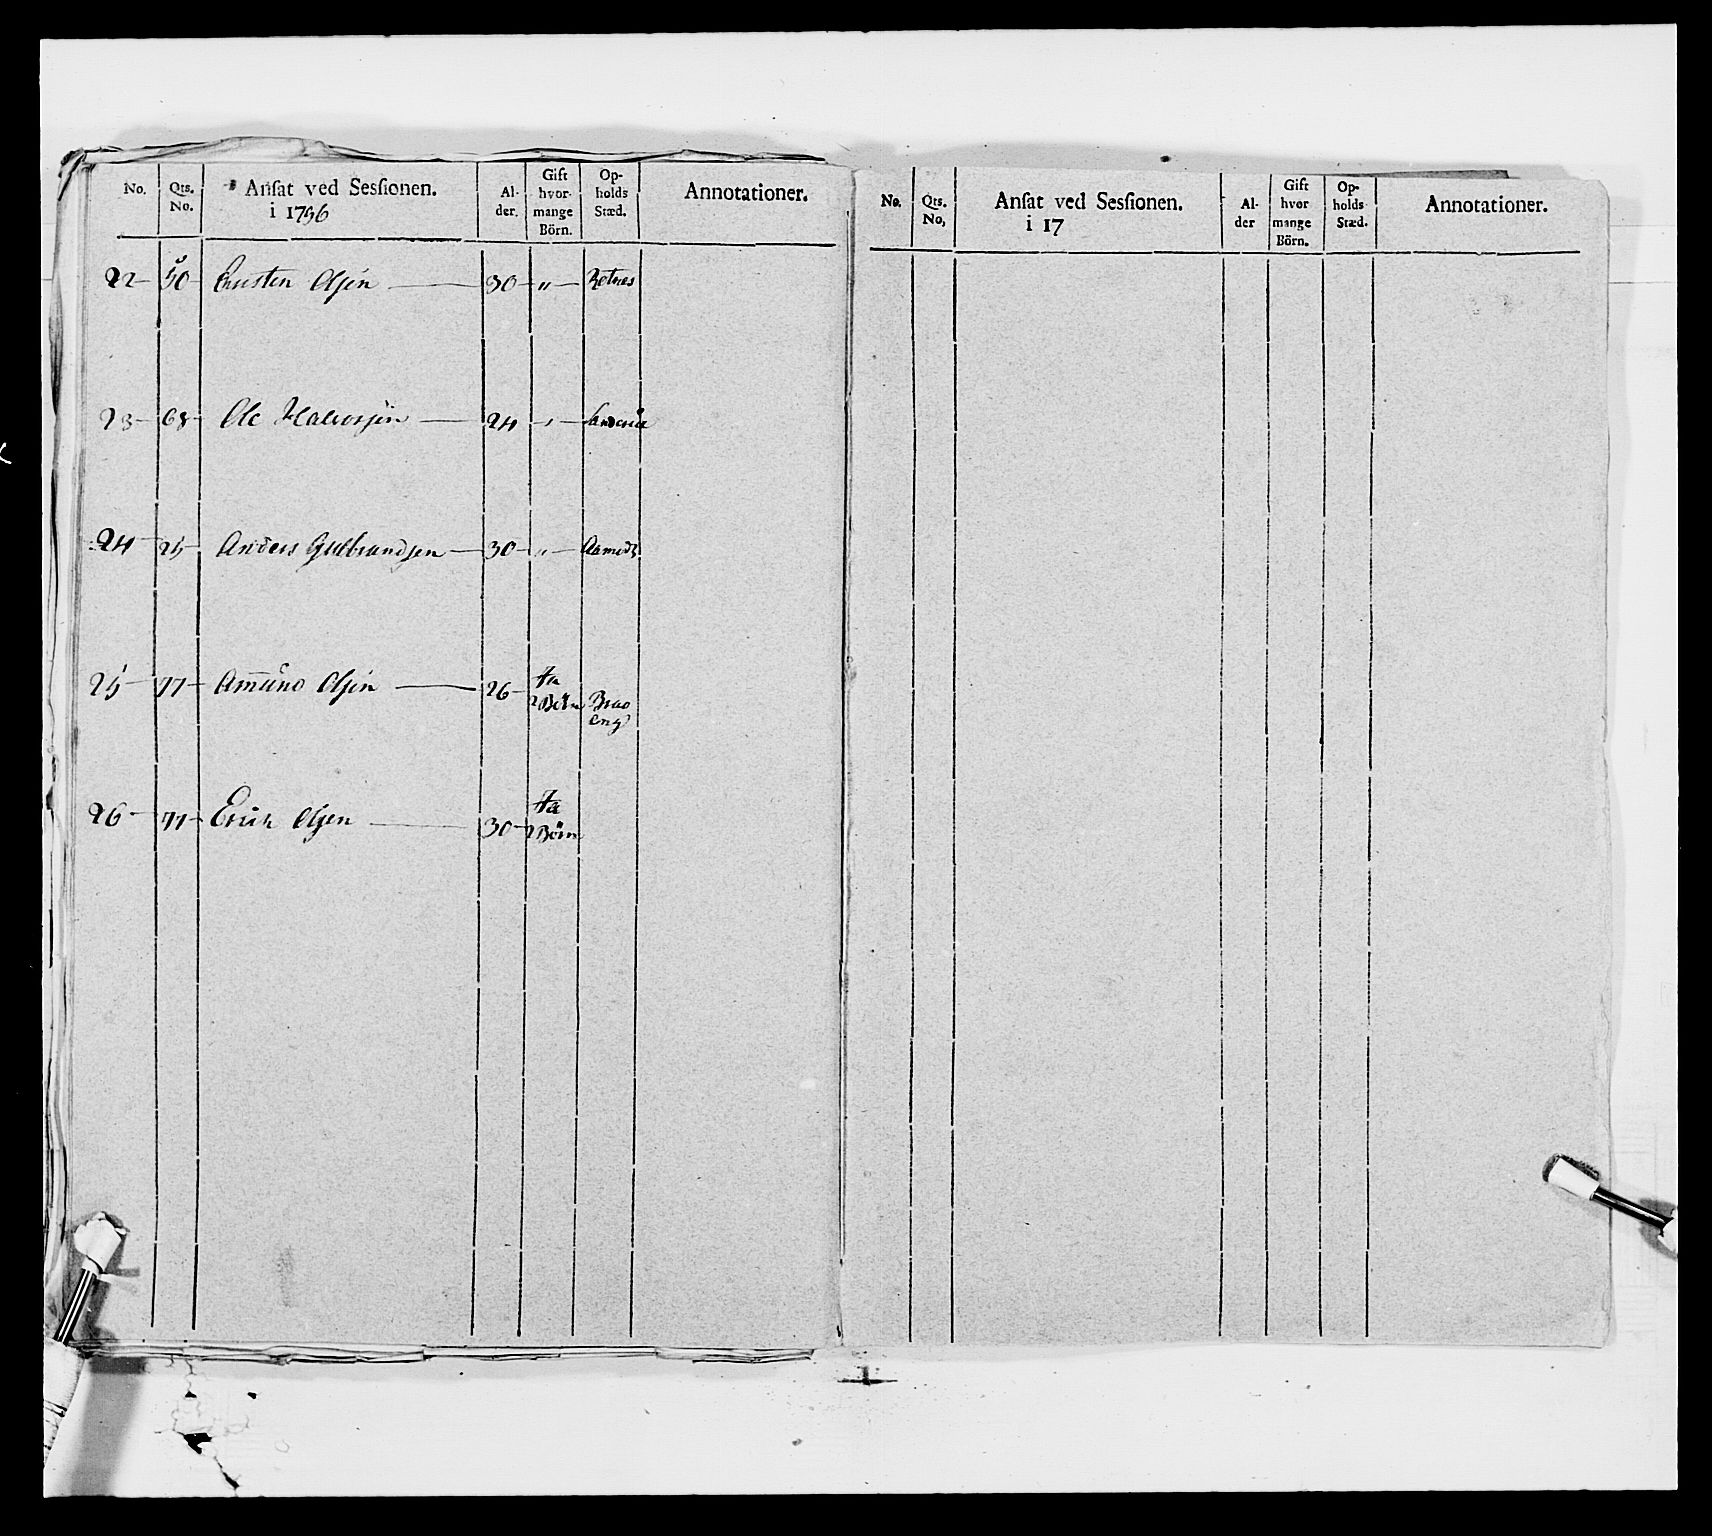 No. Qts. No. Ansat ved Sessionen. i 1796 Al- der. Gift hvor- mange Börn. Op- holds Stæd. Annotationer.
22 50 Christen Olsen 30 " Rotnes
23 68 Ole Halvorsen 24 "
24 25 Anders Gulbrandsen 30 " Aamodt
25 77 Amund Olsen 26 Ja 2 Börn Braa eng
26 77 Erich Olsen 30 Ja 2 Börn
No. Qts. No, Ansat ved Sessionen. i 17 Al- der Gift hvor mange Börn. Op- holds Stæd. Annotationer.